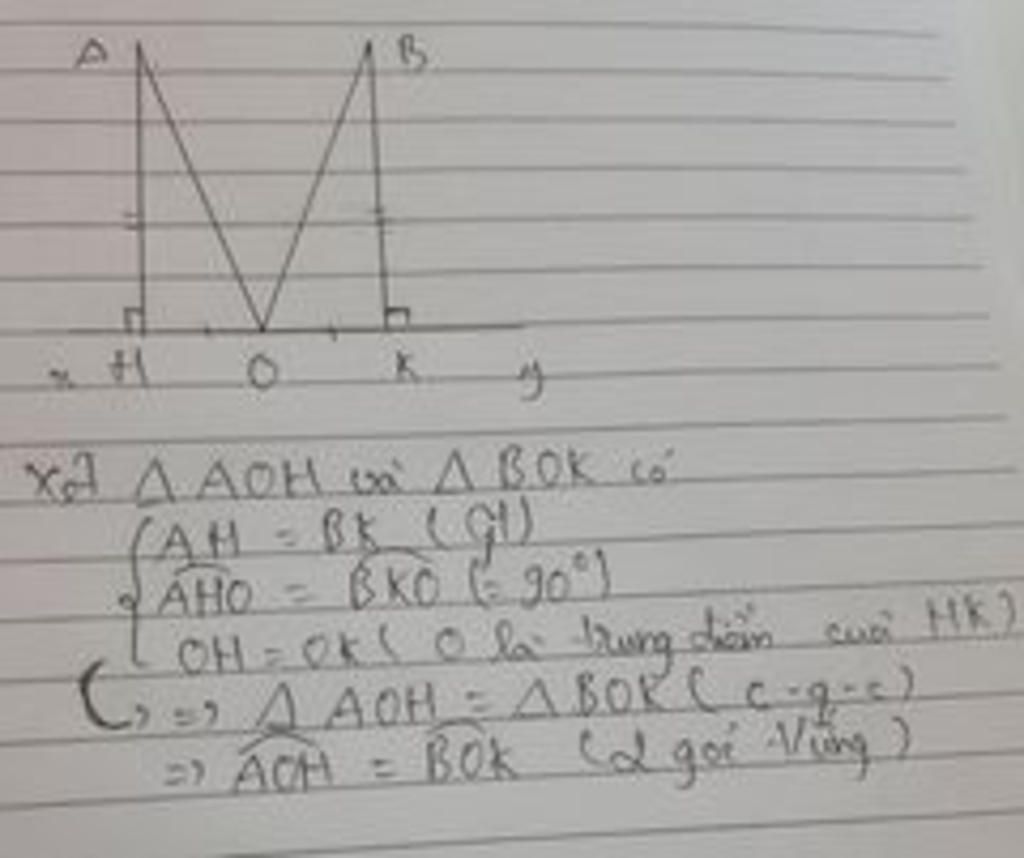 A B
x H O K y
Xét Δ AOH và Δ BOK có
AH = BK (gt)
AHO = BKO (= 90°)
OH = OK ( O là trung điểm của HK)
=> Δ AOH = Δ BOK ( c-g-c)
=> AOH = BOK (2 góc t/ứng)